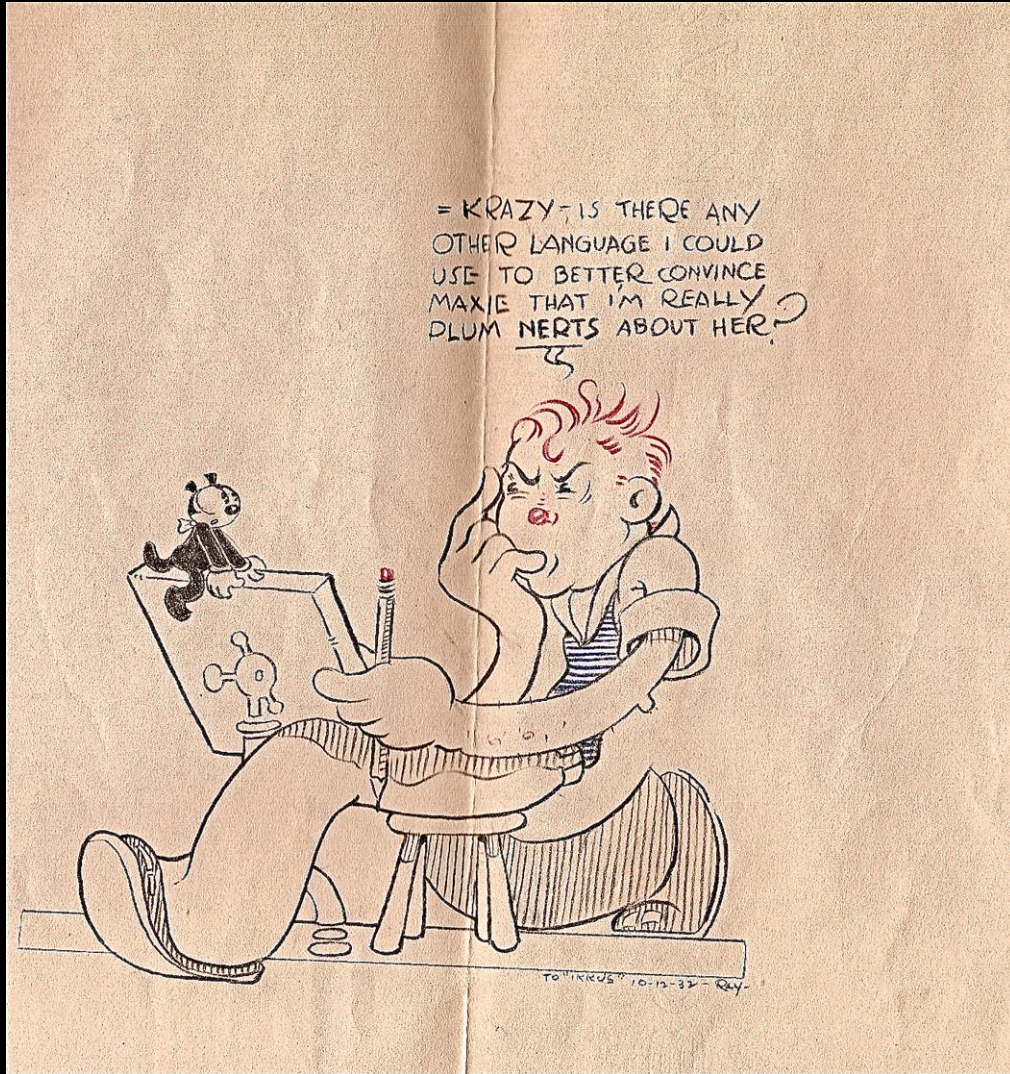 = KRAZY - IS THERE ANY
OTHER LANGUAGE I COULD
USE TO BETTER CONVINCE
MAXIE THAT I'M REALLY
PLUM NERTS ABOUT HER?
TO "IKKUS" 10-12-32 - RAY-